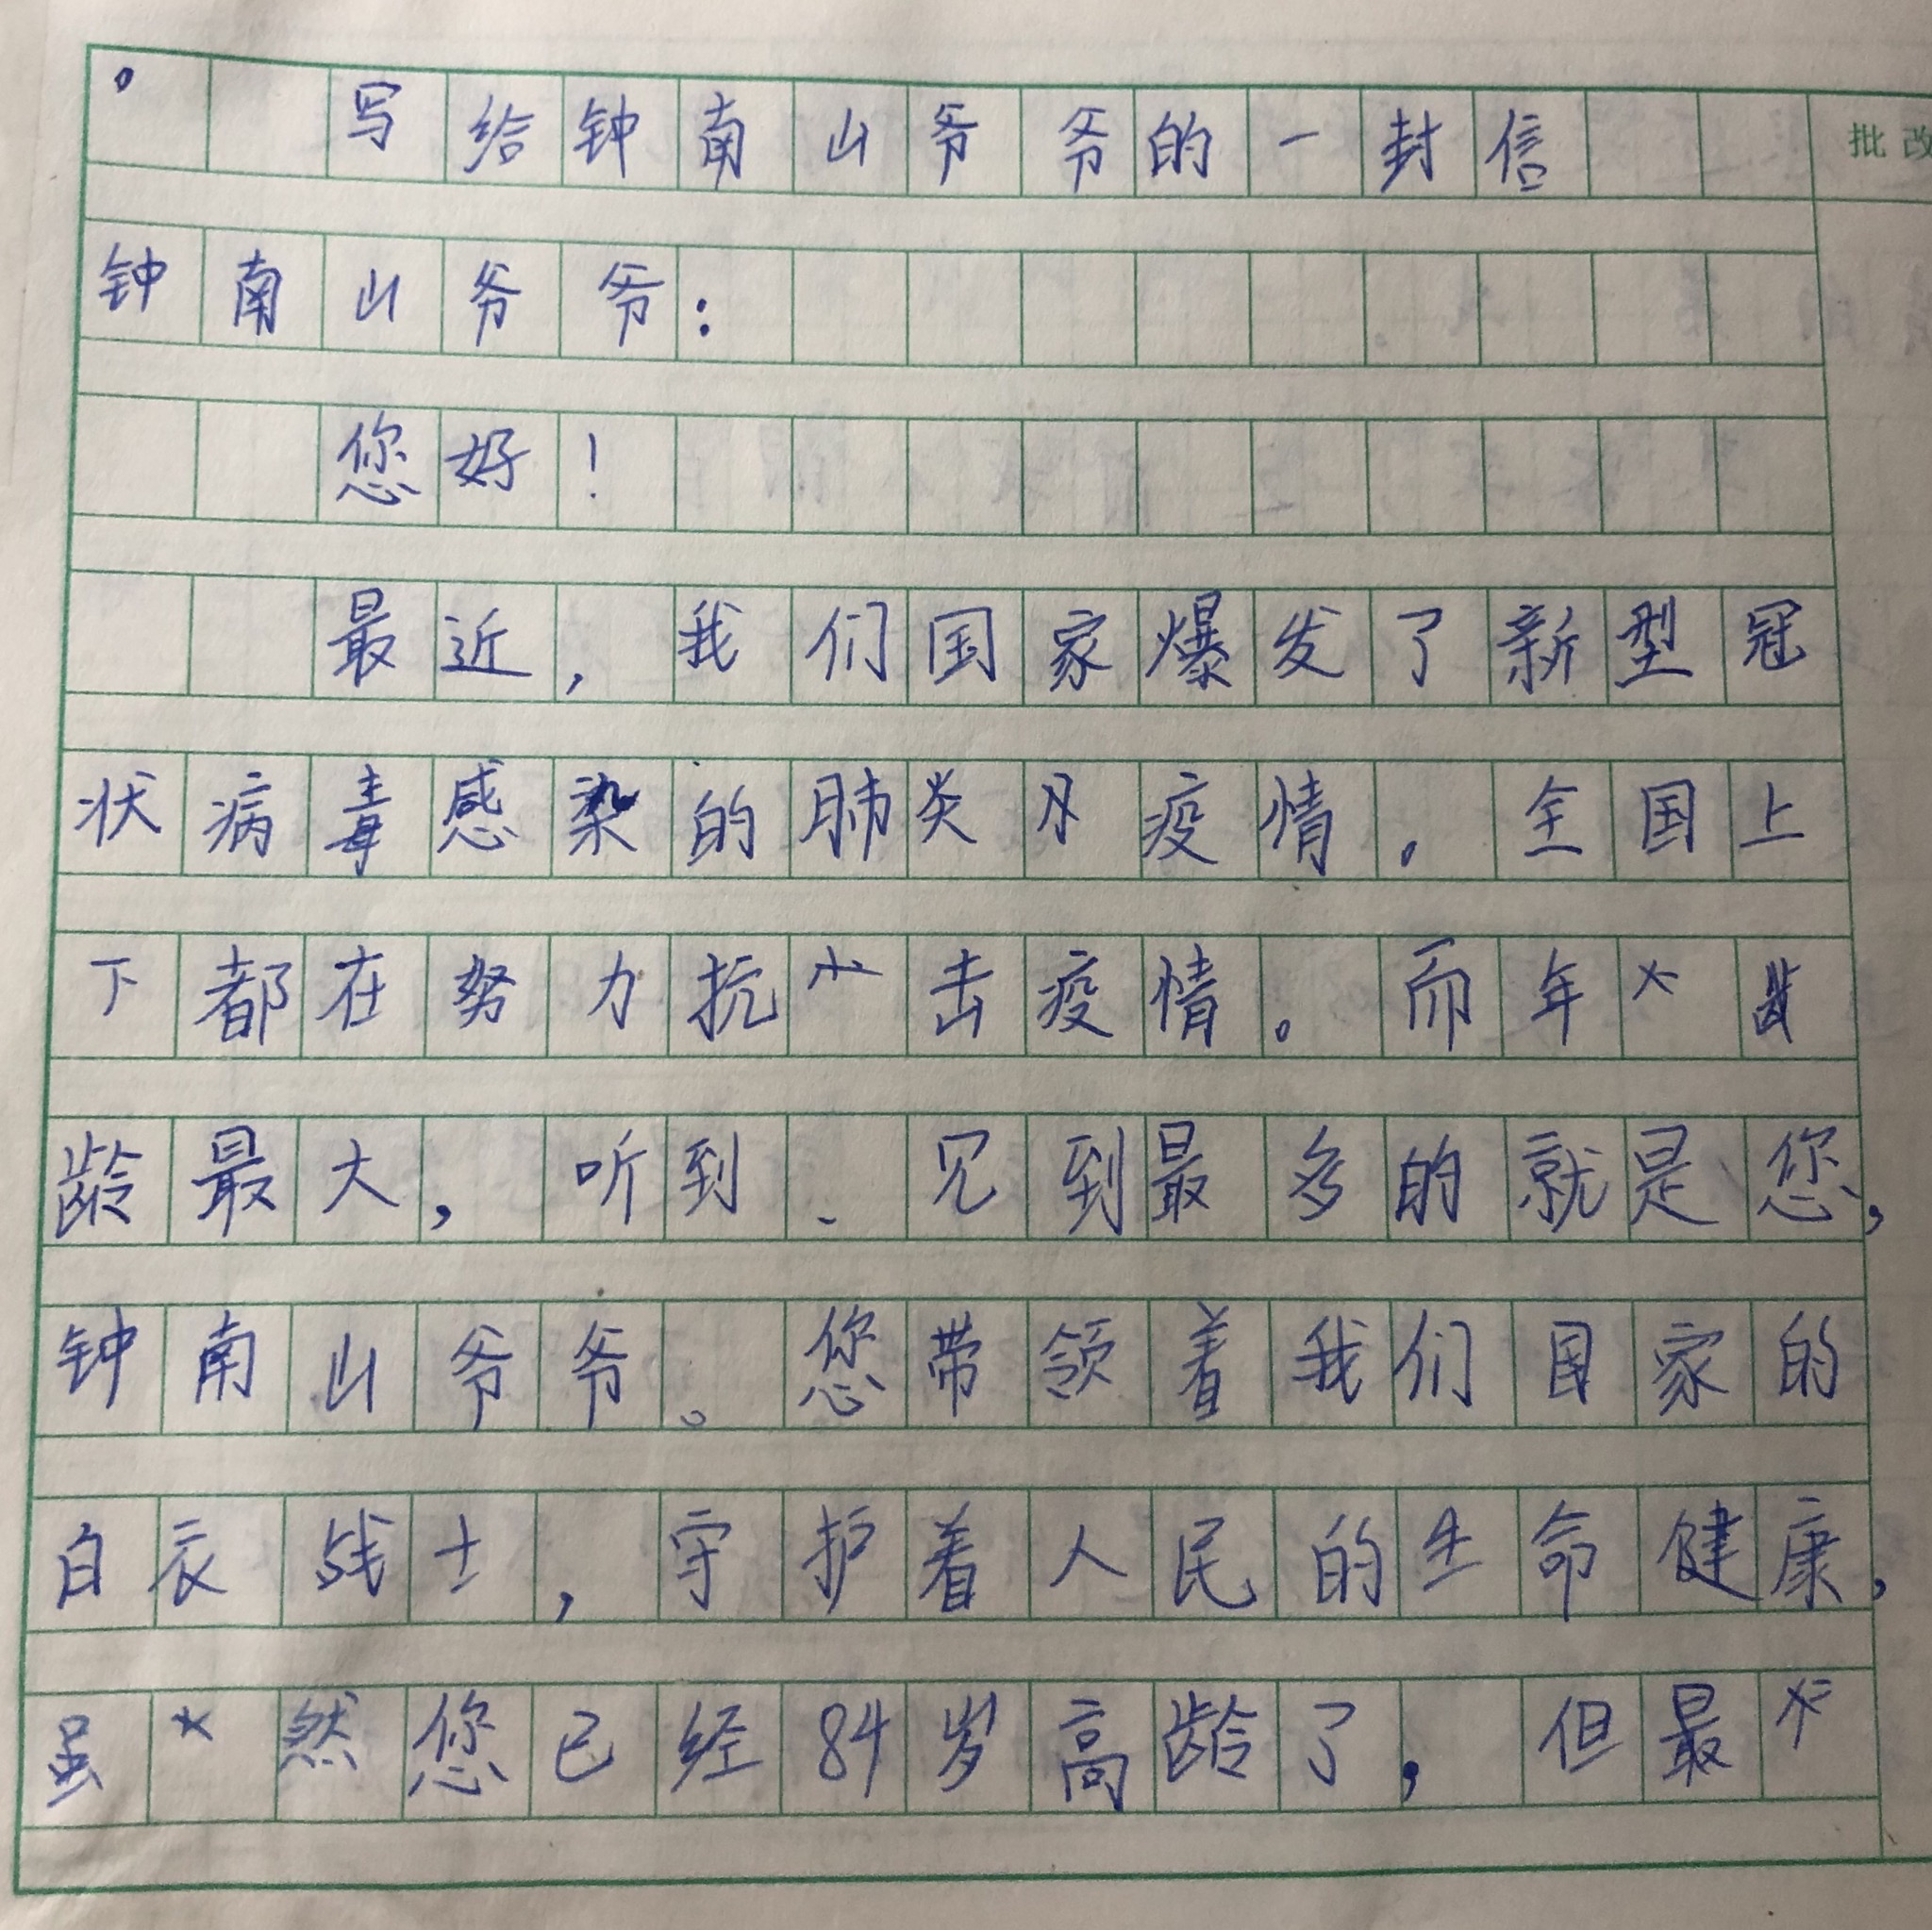 。写给钟南山爷爷的一封信
批改
钟南山爷爷:
您好!
最近,我们国家爆发了新型冠
状病毒感染的肺炎疫情。全国上
下都在努力抗击疫情。而年
龄最大,听到、见到最多的就是您,
钟南山爷爷。您带领着我们国家的
白衣战士,守护着人民的生命健康,
虽然您已经84岁高龄了,但最